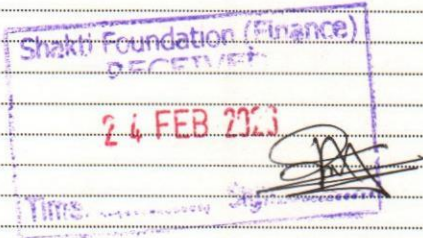 Shakti Foundation (Finance)
RECEIVED
24 FEB 2023
Time. ............ Sign. ............